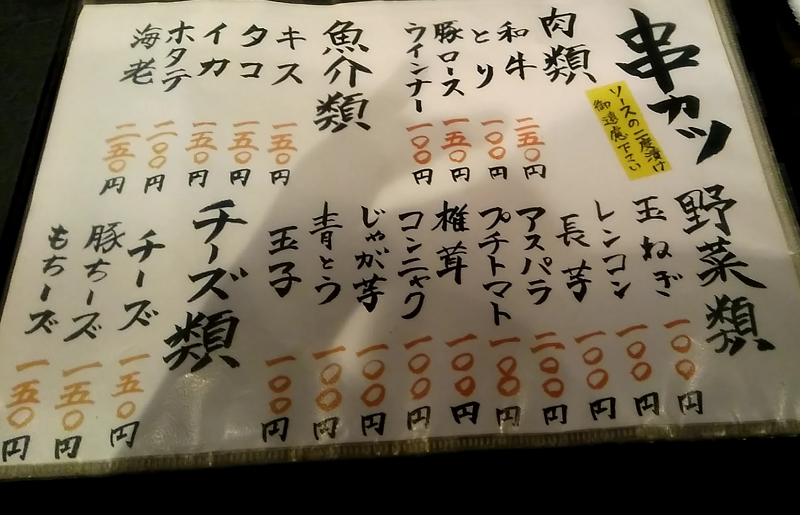 串カツ
ソースの二度漬け
御遠慮下さい
肉類
和牛 二五〇円
とり 一〇〇円
豚ロース 一五〇円
ウインナー 一〇〇円
魚介類
キス 一五〇円
タコ 一五〇円
イカ 一五〇円
ホタテ 二〇〇円
海老 二五〇円
野菜類
玉ねぎ 一〇〇円
レンコン 一〇〇円
長芋 一〇〇円
アスパラ 二〇〇円
プチトマト 一〇〇円
椎茸 一〇〇円
コンニャク 一〇〇円
じゃが芋 一〇〇円
青とう 一〇〇円
玉子 一〇〇円
チーズ類
チーズ 一五〇円
豚ちーズ 一五〇円
もちーズ 一五〇円